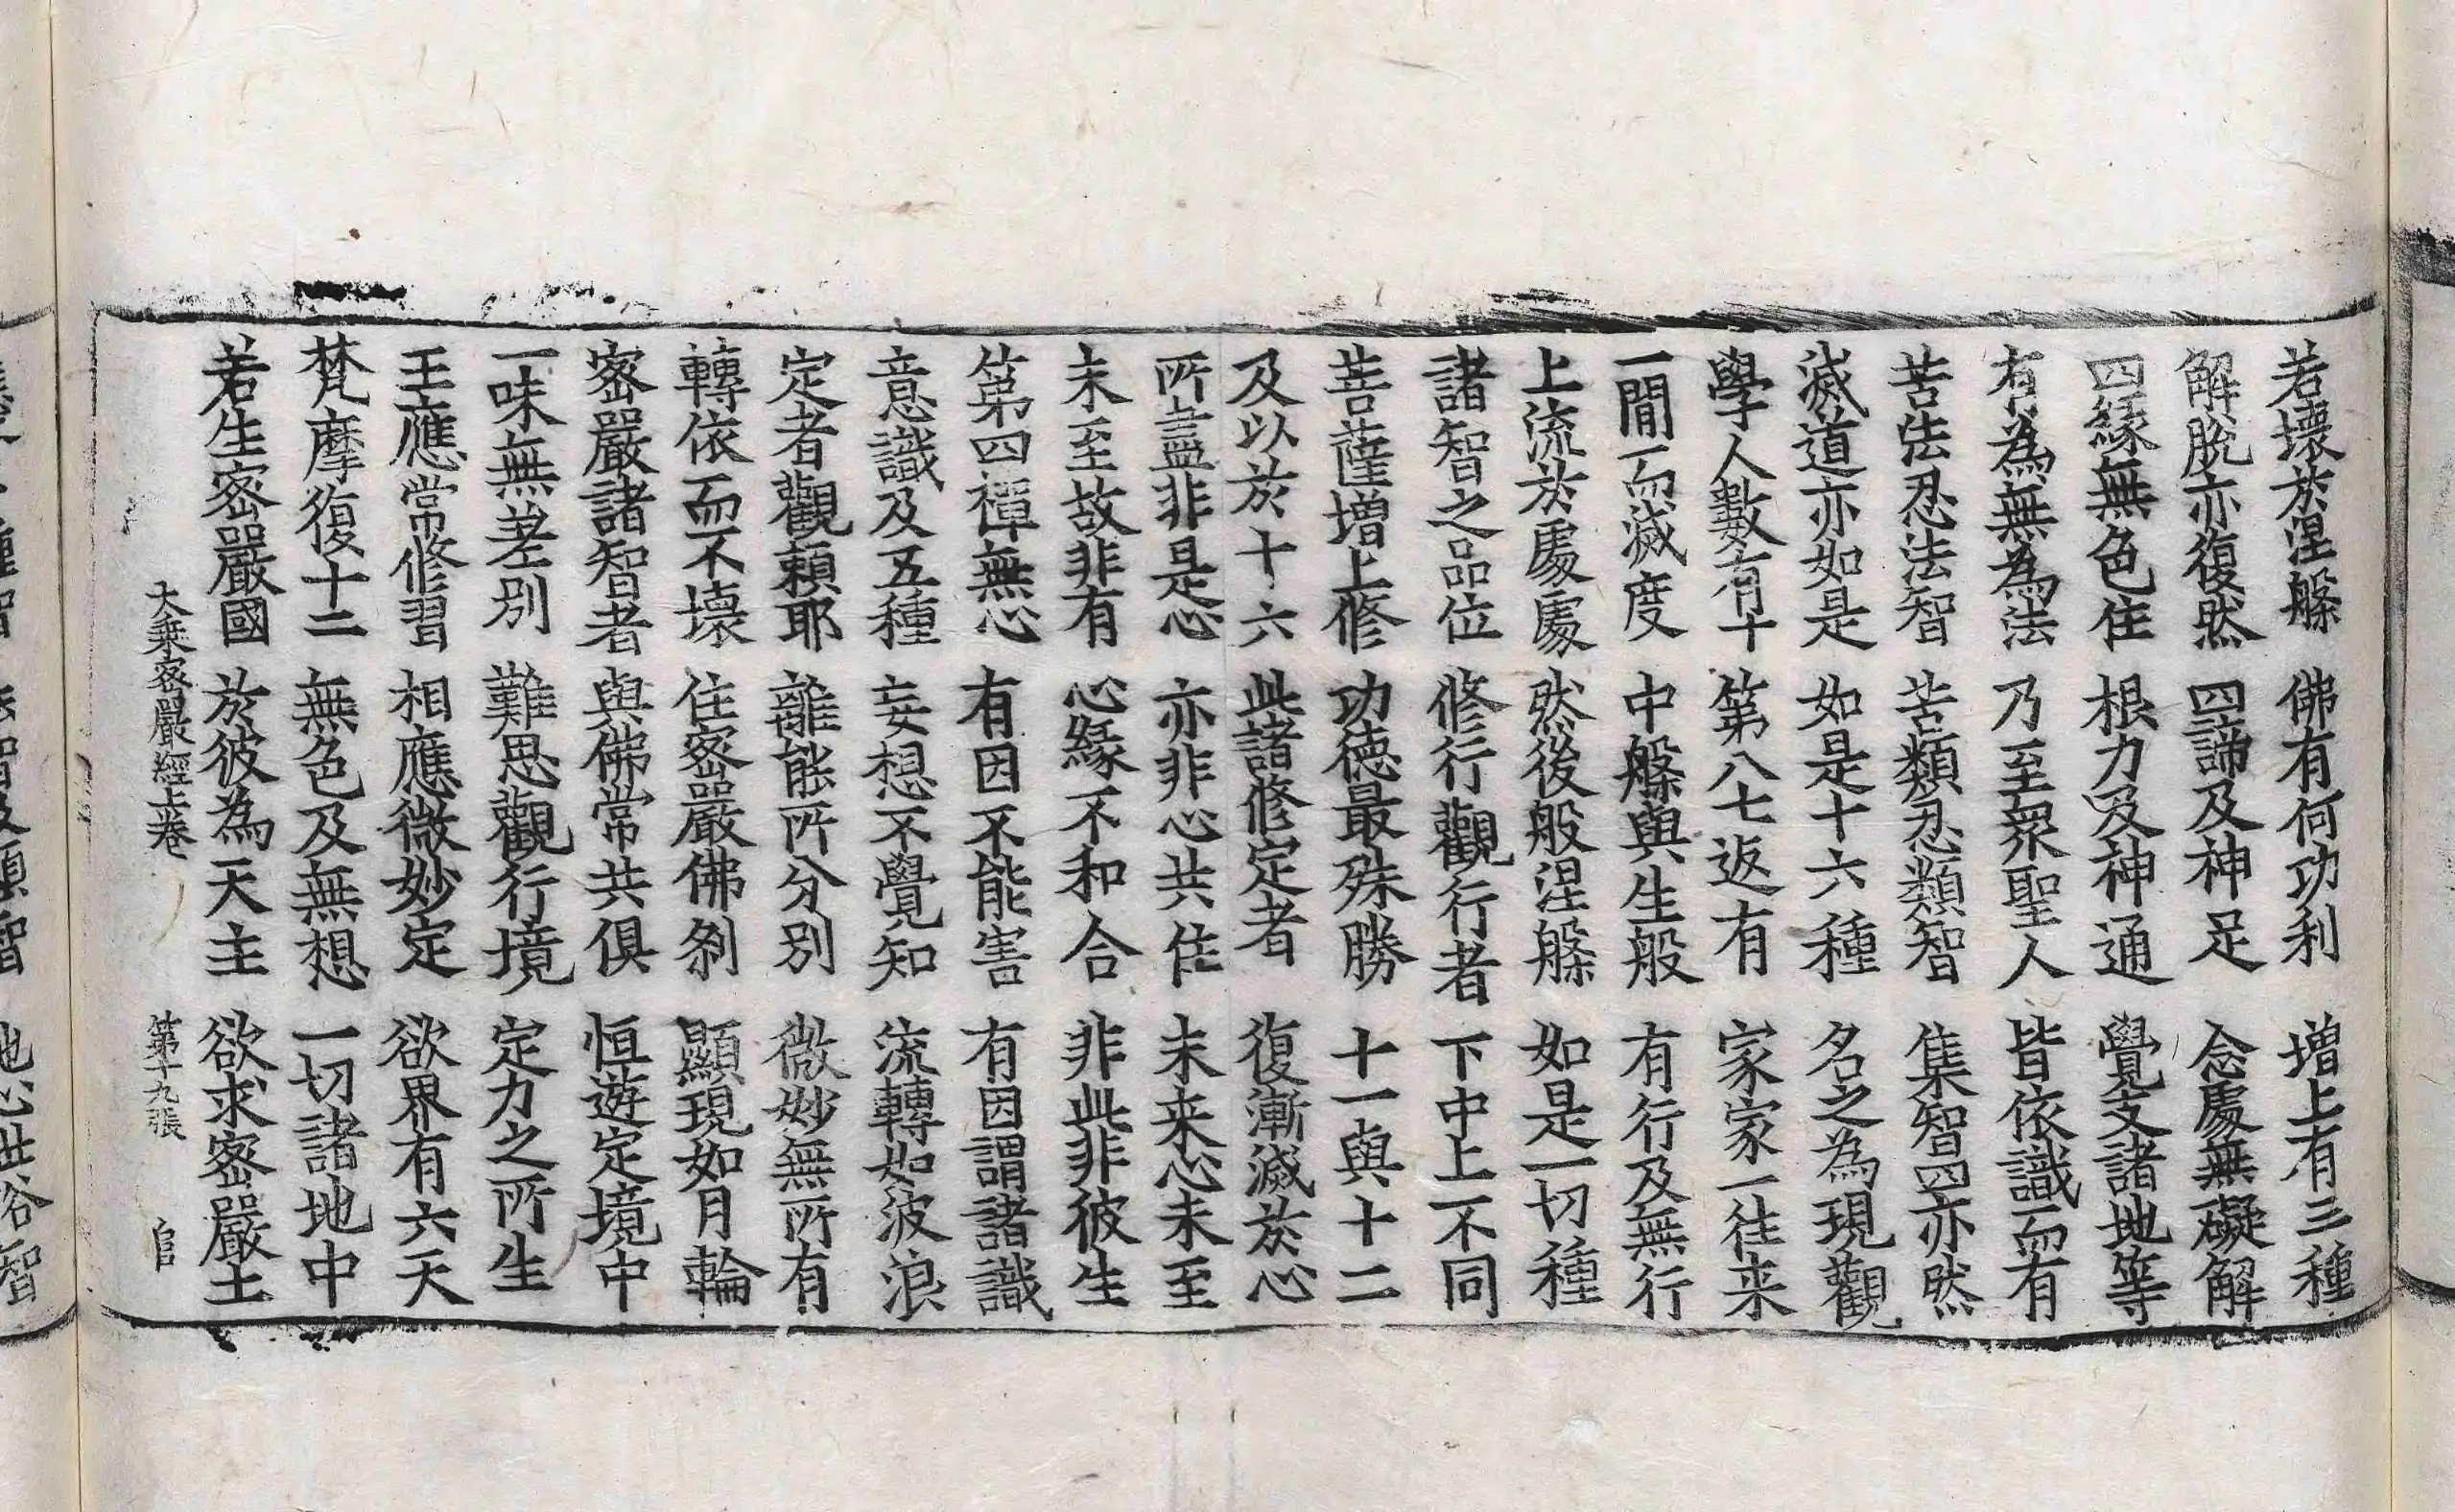 若壞於涅槃 佛有何功利 增上有三種
解脫亦復然 四諦及神足 念處無礙解
四緣無色住 根力及神通 覺支諸地等
有為無為法 乃至眾聖人 皆依識而有
苦法忍法智 苦類忍類智 集智四亦然
滅道亦如是 如是十六種 名之為現觀
學人數有十 第八七返有 家家一往来
一間而滅度 中般與生般 有行及無行
上流於處處 然後般涅槃 如是一切種
諸智之品位 修行觀行者 下中上不同
菩薩增上修 功德最殊勝 十一與十二
及以於十六 此諸修定者 復漸滅於心
所盡非是心 亦非心共住 未来心未至
未至故非有 心緣不和合 非此非彼生
第四禪無心 有因不能害 有因謂諸識
意識及五種 妄想不覺知 流轉如波浪
定者觀賴耶 離能所分別 微妙無所有
轉依而不壞 住密嚴佛剎 顯現如月輪
密嚴諸智者 與佛常共俱 恒遊定境中
一味無差別 難思觀行境 定力之所生
王應常修習 相應微妙定 欲界有六天
梵摩復十二 無色及無想 一切諸地中
若生密嚴國 於彼為天主 欲求密嚴土
大乘密嚴經上卷 第十九張